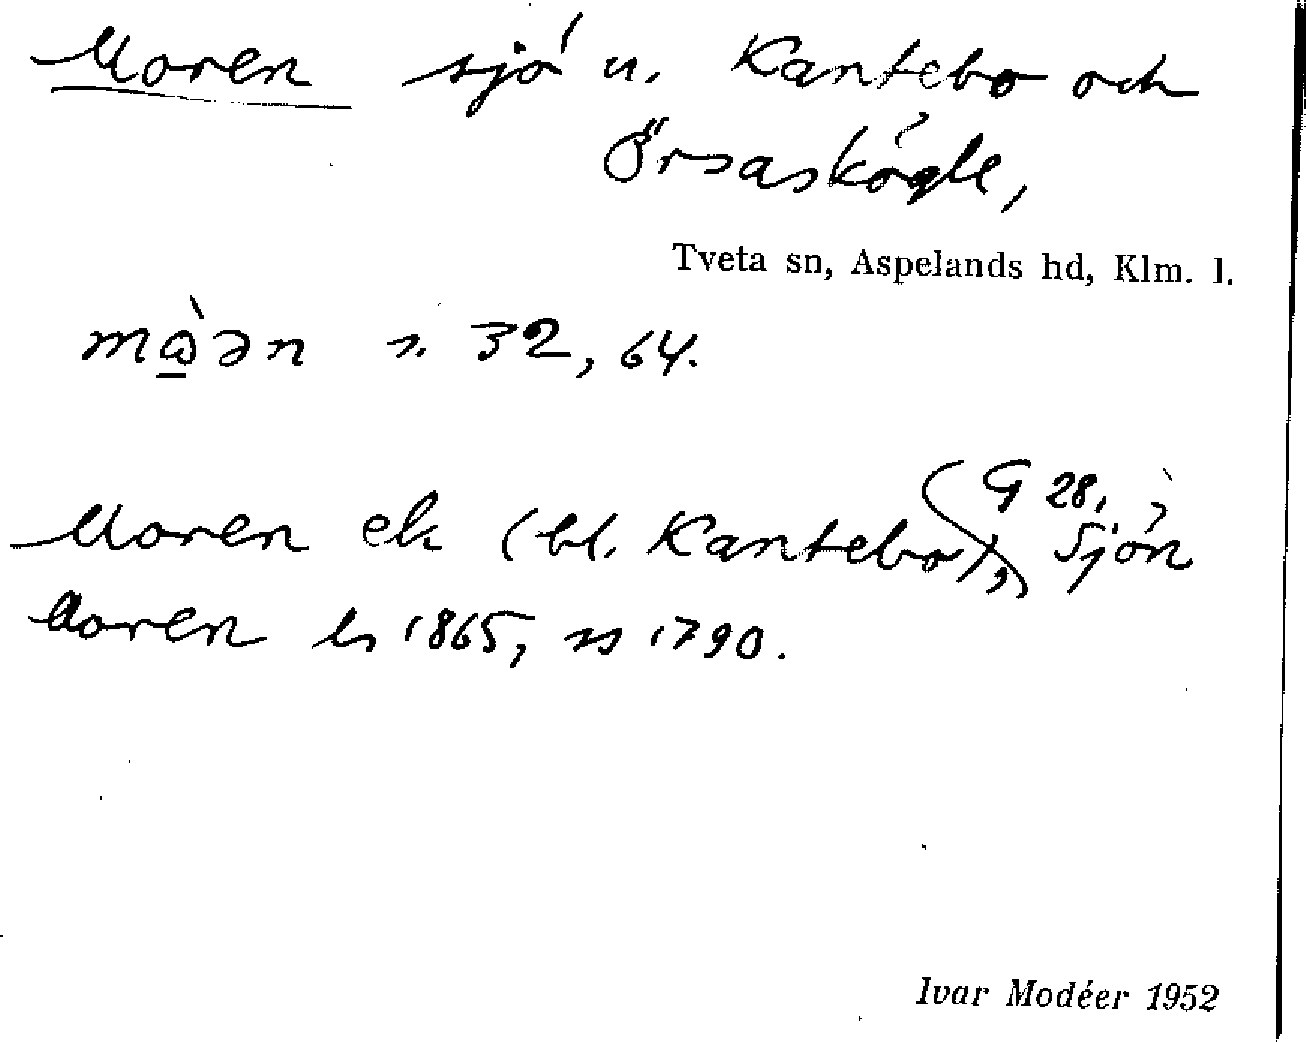 Moren sjö u. Kantebo och
Örsaskögle,
Tveta sn, Aspelands hd, Klm. l.
32, 64.
G 28,
Moren ek (bl. Kantebo), Sjön
Moren ls 1865, ss 1790.
Ivar Modéer 1952